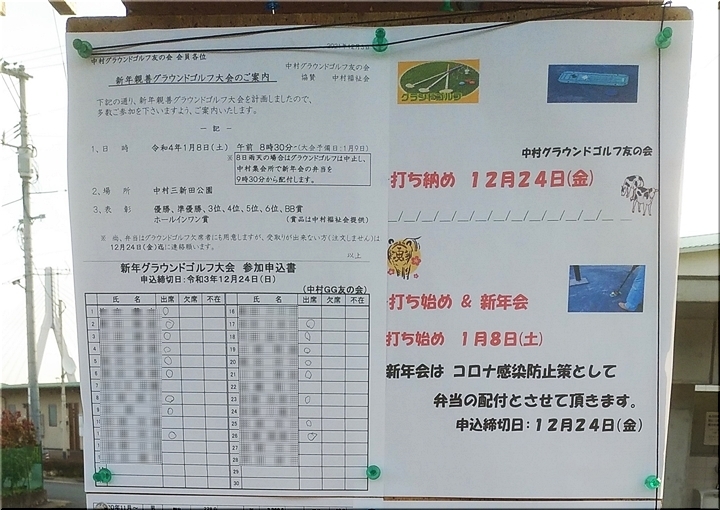 中村グラウンドゴルフ友の会 会員各位
中村グラウンドゴルフ友の会
協賛 中村福祉会
新年親善グラウンドゴルフ大会のご案内
下記の通り、新年親善グラウンドゴルフ大会を計画しましたので、
多数ご参加を下さいますよう、ご案内いたします。
― 記 ―
1、日 時 令和4年1月8日(土) 午前 8時30分~(大会予備日:1月9日)
※8日雨天の場合はグラウンドゴルフは中止し、
中村集会所で新年会の弁当を
9時30分から配付します。
2、場 所 中村三新田公園
3、表 彰 優勝、準優勝、3位、4位、5位、6位、BB賞
ホールインワン賞 (賞品は中村福祉会提供)
※ 尚、弁当はグラウンドゴルフ欠席者にも用意しますが、受取りが出来ない方(注文しません)は
12月24日(金)迄に連絡願います。
以上
新年グラウンドゴルフ大会 参加申込書
申込締切日:令和3年12月24日(日)
(中村GG友の会)
氏 名 出席 欠席 不在 氏 名 出席 欠席 不在
グラウンドゴルフ
中村グラウンドゴルフ友の会
打ち納め 12月24日(金)
打ち始め & 新年会
打ち始め 1月8日(土)
新年会は コロナ感染防止策として
弁当の配付とさせて頂きます。
申込締切日:12月24日(金)